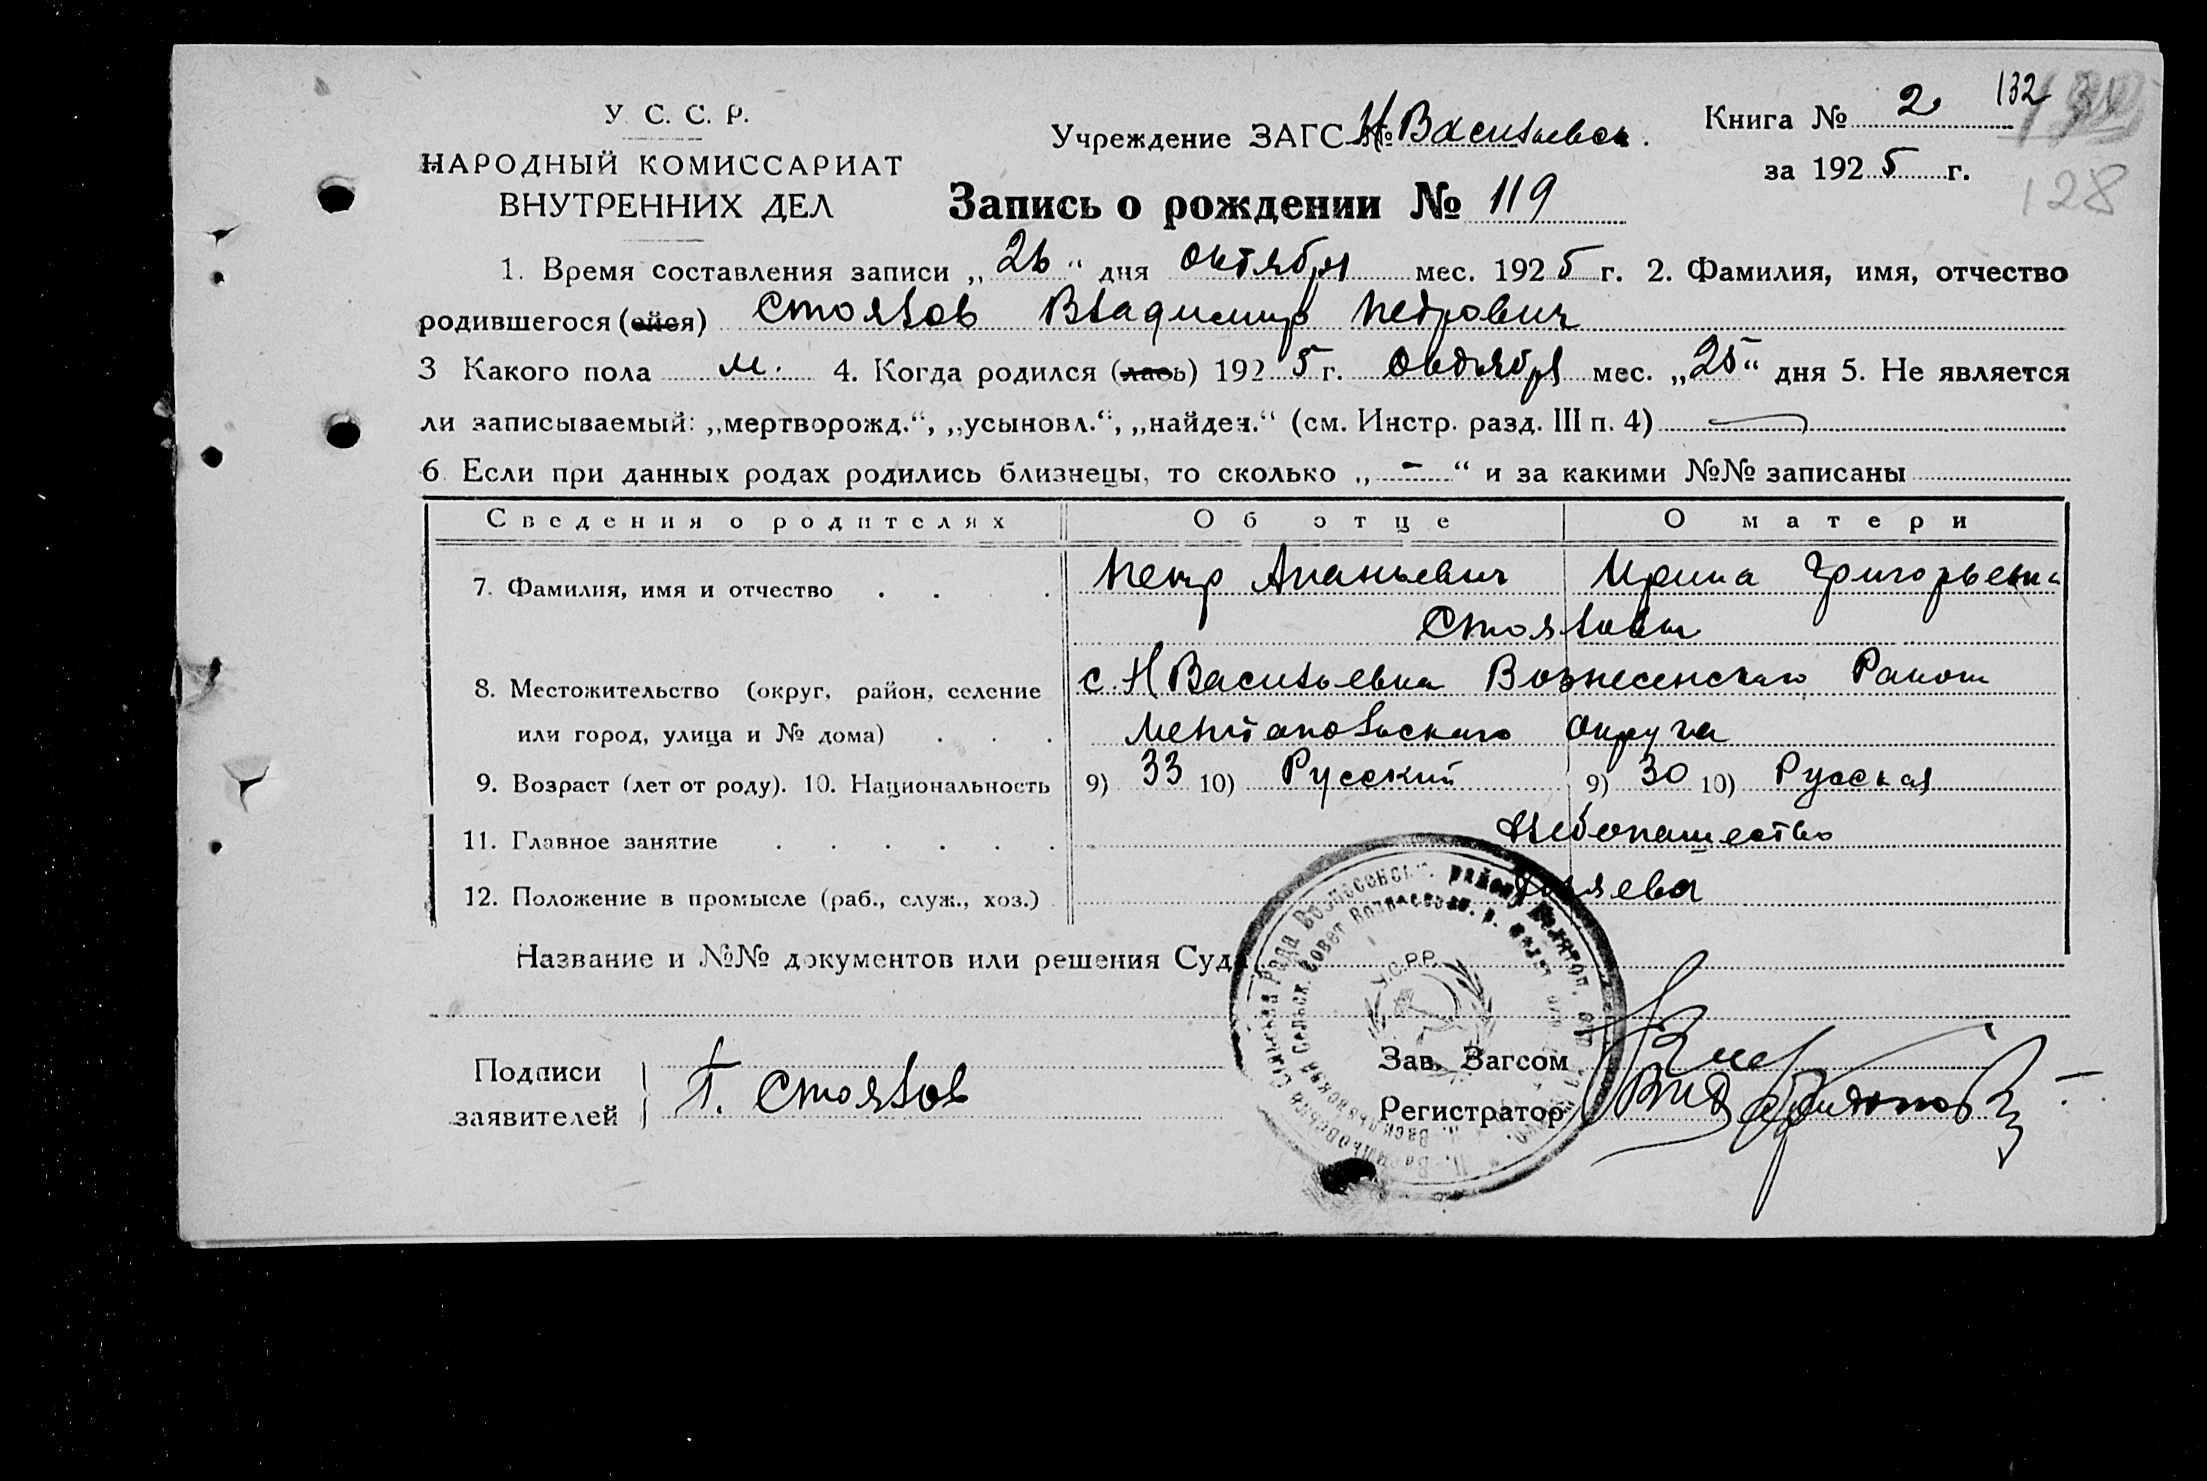 У. С. С. Р.
НАРОДНЫЙ КОМИССАРИАТ
ВНУТРЕННИХ ДЕЛ
Учреждение ЗАГС № Н Васильевск.
Книга № 2
132
за 1925 г.
128
Запись о рождении № 119
1. Время составления записи „26“ дня октября мес. 1925 г. 2. Фамилия, имя, отчество
родившегося (ейся) Стоялов Владимир Петрович
3 Какого пола м. 4. Когда родился (лась) 1925 г. Октября мес. „25“ дня 5. Не является
ли записываемый: „мертворожд.“, „усыновл.“, „найден.“ (см. Инстр. разд. III п. 4)
6. Если при данных родах родились близнецы, то сколько „ – “ и за какими №№ записаны
Сведения о родителях Об отце О матери
7. Фамилия, имя и отчество Петр Ананьевич Ирина Григорьевна
Стояловы
8. Местожительство (округ, район, селение с. Н Васильевка Вознесенского Района
или город, улица и № дома) Мелитопольского округа
9. Возраст (лет от роду). 10. Национальность 9) 33 10) Русский 9) 30 10) Русская
11. Главное занятие Хлебопашество
12. Положение в промысле (раб., служ., хоз.) Хозяева
Название и №№ документов или решения Суда
У.С.Р.Р.
Подписи
заявителей П. Стоялов
Зав. Загсом
Регистратор